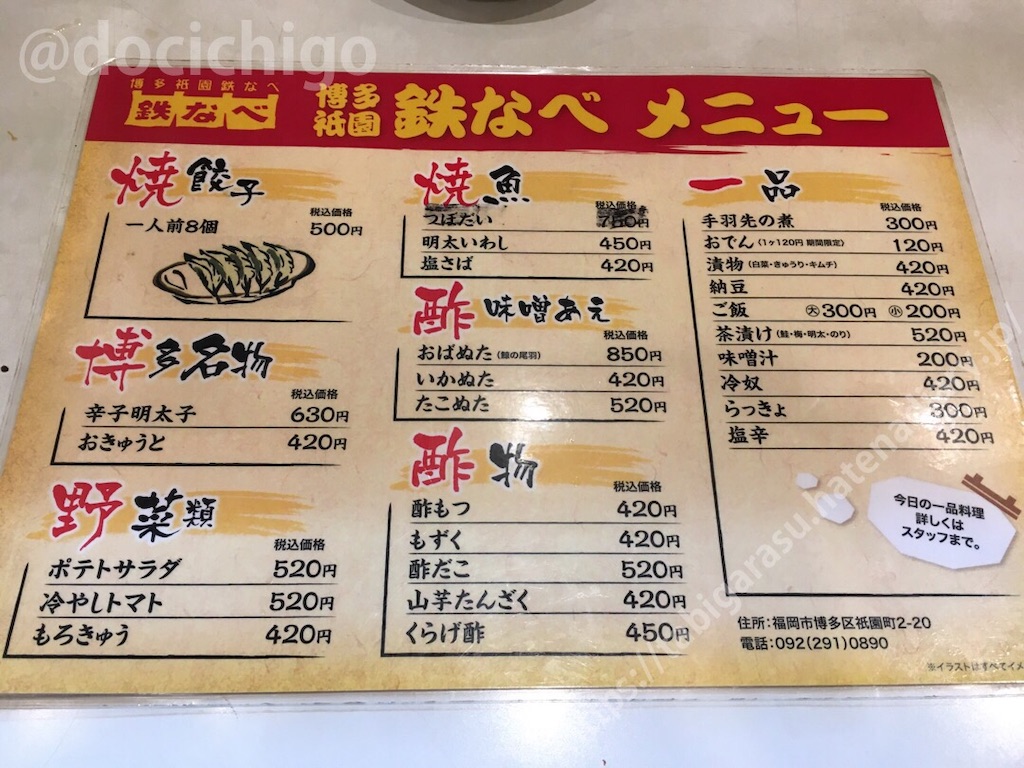 @docichigo
博多祇園鉄なべ
鉄なべ
博多
祇園 鉄なべ メニュー
焼餃子
税込価格
一人前8個 500円
博多名物
税込価格
辛子明太子 630円
おきゅうと 420円
野菜類
税込価格
ポテトサラダ 520円
冷やしトマト 520円
もろきゅう 420円
焼魚
税込価格
つぼだい 750円
明太いわし 450円
塩さば 420円
酢味噌あえ
税込価格
おばぬた(鯨の尾羽) 850円
いかぬた 420円
たこぬた 520円
酢物
税込価格
酢もつ 420円
もずく 420円
酢だこ 520円
山芋たんざく 420円
くらげ酢 450円
一品
税込価格
手羽先の煮 300円
おでん(1ヶ120円 期間限定) 120円
漬物(白菜・きゅうり・キムチ) 420円
納豆 420円
ご飯 大300円 小200円
茶漬け(鮭・梅・明太・のり) 520円
味噌汁 200円
冷奴 420円
らっきょ 300円
塩辛 420円
今日の一品料理
詳しくは
スタッフまで。
住所:福岡市博多区祇園町2-20
電話:092(291)0890
※イラストはすべてイメ